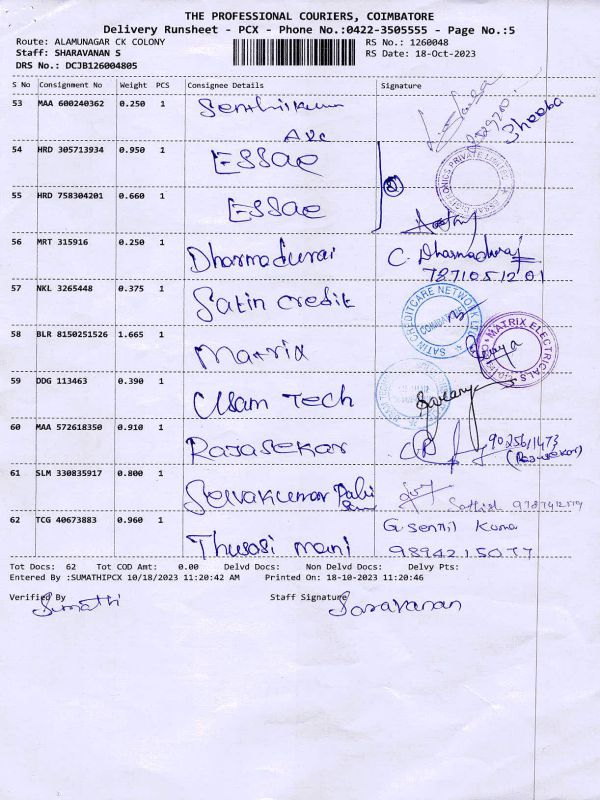 THE PROFESSIONAL COURIERS, COIMBATORE
Delivery Runsheet - PCX - Phone No.:0422-3505555 - Page No.:5
Route: ALAMUNAGAR CK COLONY RS No.: 1260048
Staff: SHARAVANAN S RS Date: 18-Oct-2023
DRS No.: DCJB126004805
S No Consignment No Weight PCS Consignee Details Signature
53 MAA 600240362 0.250 1 Senthilkumar Sheeba
54 HRD 305713934 0.950 1 ESSAE
55 HRD 758304201 0.660 1 ESSAE
56 MRT 315916 0.250 1 Dharmadurai C. Dharmaduraj
7871051201
57 NKL 3265448 0.375 1 Satin credit SATIN CREDITCARE NETWORK LTD COIMBATORE
58 BLR 8150251526 1.665 1 Matrix MATRIX ELECTRICALS
59 DDG 113463 0.390 1 Usam Tech
60 MAA 572618350 0.910 1 Rajasekar 9025611473
(Rajasekar)
61 SLM 330835917 0.800 1 Selvakumar Sathish 9787412579
62 TCG 40673883 0.960 1 Thulasi mani G. Senthil Kumar
9894215077
Tot Docs: 62 Tot COD Amt: 0.00 Delvd Docs: Non Delvd Docs: Delvy Pts:
Entered By :SUMATHIPCX 10/18/2023 11:20:42 AM Printed On: 18-10-2023 11:20:46
Verified By Staff Signature
Sumathi Saravanan